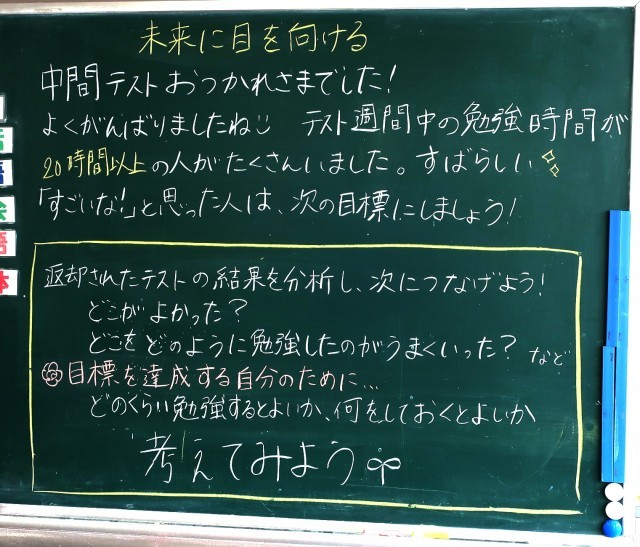 未来に目を向ける
中間テストおつかれさまでした！
よくがんばりましたね テスト週間中の勉強時間が
20時間以上の人がたくさんいました。すばらしい
「すごいな！」と思った人は、次の目標にしましょう！
返却されたテストの結果を分析し、次につなげよう！
どこがよかった？
どこをどのように勉強したのがうまくいった？ など
目標を達成する自分のために…
どのくらい勉強するとよいか、何をしておくとよいか
考えてみよう